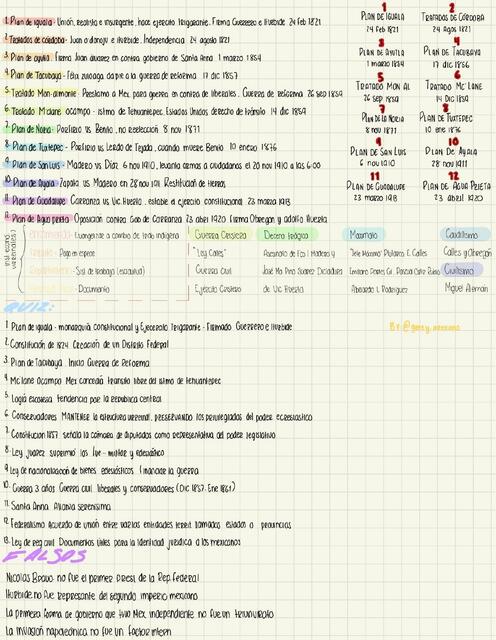 1. Plan de Iguala - Unión, realista e insurgente, hace ejercito trigarante. Firma Guerrero e Iturbide 24 feb 1821
2. Tratados de córdoba - Juan o donojú e iturbide. Independencia 24 agosto 1821
3. Plan de ayutla - Firma Juan álvarez en contra gobierno de Santa Anna 1 marzo 1854
4. Plan de Tacubaya - Félix zuloaga da pie a la guerra de reforma 17 dic 1857
5. Tratado Mon-almonte - Prestamo a Mex para guerra en contra de liberales. Guerra de Reforma 26 sep 1859
6. Tratado Mclane ocampo - Istmo de Tehuantepec. Estados Unidos derecho de tránsito 14 dic 1859
7. Plan de Noria - Porfirio vs Benito, no reelección 8 nov 1871
8. Plan de Tuxtepec - Porfirio vs Lerdo de Tejada, cuando muere Benito 10 enero 1876
9. Plan de San Luis - Madero vs Díaz 6 nov 1910, levanta armas a ciudadanos el 20 nov 1910 a las 6:00
10. Plan de Ayala Zapata vs Madero en 28 nov 1911 Restitución de tierras
11. Plan de Guadalupe Carranza vs Vic. Huerta. establece el ejercito constitucional 23 marzo 1913
12. Plan de Agua prieta Oposición contra Gob de Carranza 23 abril 1920 Firma Obregon y adolfo Huerta
1
PLAN DE IGUALA
24 FEB 1821
2
TRATADOS DE CÓRDOBA
24 AGOS 1821
3
PLAN DE AYUTLA
1 MARZO 1854
4
PLAN DE TACUBAYA
17 DIC 1856
5
TRATADO MON AL
26 SEP 1859
6
TRATADO MC LANE
14 DIC 1859
7
PLAN DE LA NORIA
8 NOV 1871
8
PLAN DE TUXTEPEC
10 ENE 1876
9
PLAN DE SAN LUIS
6 NOV 1910
10
PLAN DE AYALA
28 NOV 1911
11
PLAN DE GUADALUPE
23 MARZO 1913
12
PLAN DE AGUA PRIETA
23 ABRIL 1920
Encomienda - Evangelizante a cambio de trab indigena
Pago en especie
Sist. de trabajo (esclavitud)
Documento
Guerra Cristera
"Ley Calles"
Guerra Civil
Ejército Cristero
Decena trágica
Asesinato de Fco I Madero y
José Ma Pino Suarez Dictadura
de Vic Huerta
Maximato
"Jefe Maximo" Plutarco E. Calles
Emilio Portes Gil, Pascual Ortiz Rubio
Abelardo L Rodriguez
Caudillismo
Calles y Obregón
Civilismo
Miguel Alemán
QUIZ:
1. Plan de Iguala - monarquía constitucional y Ejercito Trigarante - Firmado Guerrero e Iturbide
2. Constitución de 1824 Creación de un Distrito Federal
3. Plan de Tacubaya. Inicio Guerra de Reforma
4. Mc lane Ocampo Mex concedía transito libre del Istmo de tehuantepec
5. Logia escocesa tendencia por la republica central
6. Conservadores MANTENER la estructura virreinal, preservando los privilegiados del poder eclesiastico
7. Constitucion 1857 señala la cámara de diputados como representativa del poder legislativo
8. Ley Juarez suprimió los fue- militar y eclesiático
9. Ley de nacionalización de bienes eclesiásticos financiar la guerra
10. Guerra 3 años Guerra civil liberales y conservadores (Dic 1857. Ene 1861)
11. Santa Anna Alteza serenisima
12. Federalismo Acuerdo de unión entre varias entidades territ llamadas estados o provincias
13. Ley de reg civil Documentos utiles para la identidad juridica a los mexicanos
FALSOS
Nicolas Bravo no fue el primer presi de la Rep Federal
Iturbide no fue representante del segundo imperio mexicano
La primera forma de gobierno que tuvo Mex independiente no fue un triunvirato
La invasión napoleónica no fue un factor intern